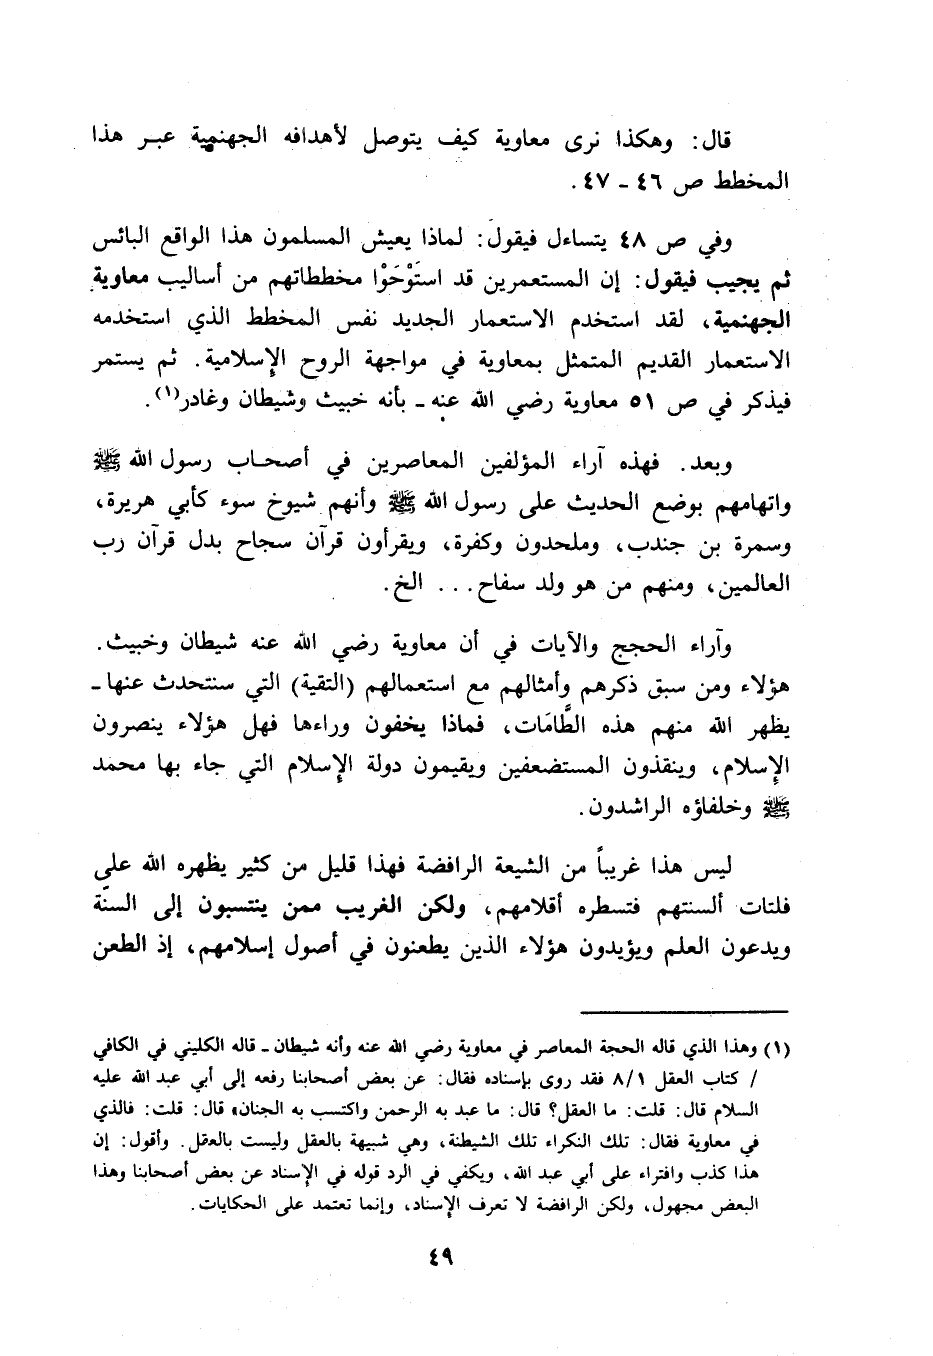 قال: وهكذا نرى معاوية كيف يتوصل لأهدافه الجهنمية عبر هذا
المخطط ص ٤٦ - ٤٧.
وفي ص ٤٨ يتساءل فيقول: لماذا يعيش المسلمون هذا الواقع البائس
ثم يجيب فيقول: إن المستعمرين قد استَوْحَوْا مخططاتهم من أساليب معاوية
الجهنمية، لقد استخدم الاستعمار الجديد نفس المخطط الذي استخدمه
الاستعمار القديم المتمثل بمعاوية في مواجهة الروح الإسلامية. ثم يستمر
فيذكر في ص ٥١ معاوية رضي الله عنه - بأنه خبيث وشيطان وغادر(١).
وبعد. فهذه آراء المؤلفين المعاصرين في أصحاب رسول الله ﷺ
واتهامهم بوضع الحديث على رسول الله ﷺ وأنهم شيوخ سوء كأبي هريرة،
وسمرة بن جندب، وملحدون وكفرة، ويقرأون قرآن سجاح بدل قرآن رب
العالمين، ومنهم من هو ولد سفاح... الخ.
وآراء الحجج والآيات في أن معاوية رضي الله عنه شيطان وخبيث.
هؤلاء ومن سبق ذكرهم وأمثالهم مع استعمالهم (التقية) التي سنتحدث عنها -
يظهر الله منهم هذه الطَّامَات، فماذا يخفون وراءها فهل هؤلاء ينصرون
الإسلام، وينقذون المستضعفين ويقيمون دولة الإسلام التي جاء بها محمد
ﷺ وخلفاؤه الراشدون.
ليس هذا غريباً من الشيعة الرافضة فهذا قليل من كثير يظهره الله على
فلتات ألسنتهم فتسطره أقلامهم، ولكن الغريب ممن ينتسبون إلى السنّة
ويدعون العلم ويؤيدون هؤلاء الذين يطعنون في أصول إسلامهم، إذ الطعن
(١) وهذا الذي قاله الحجة المعاصر في معاوية رضي الله عنه وأنه شيطان - قاله الكليني في الكافي
/ كتاب العقل ٨/١ فقد روى بإسناده فقال: عن بعض أصحابنا رفعه إلى أبي عبد الله عليه
السلام قال: قلت: ما العقل؟ قال: ما عبد به الرحمن واكتسب به الجنان» قال: قلت: فالذي
في معاوية فقال: تلك النكراء تلك الشيطنة، وهي شبيهة بالعقل وليست بالعقل. وأقول: إن
هذا كذب وافتراء على أبي عبد الله، ويكفي في الرد قوله في الإسناد عن بعض أصحابنا وهذا
البعض مجهول، ولكن الرافضة لا تعرف الإسناد، وإنما تعتمد على الحكايات.
٤٩